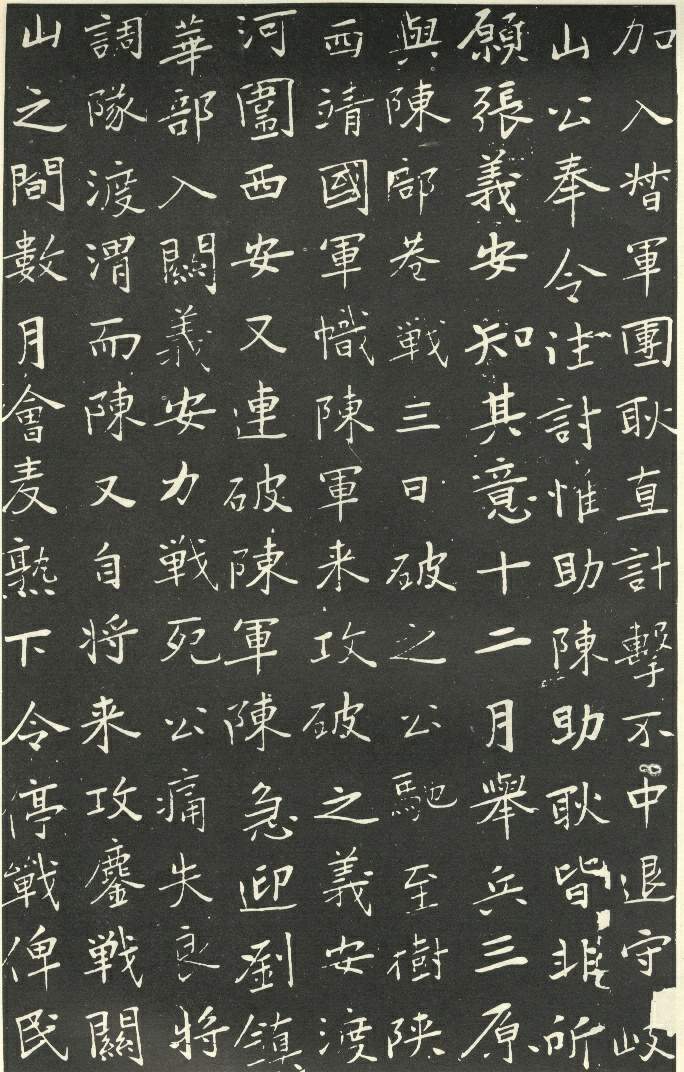 加入督軍團耿直計擊不中退守岐
山公奉令往討惟助陳助耿皆非所
願張義安知其意十二月舉兵三原
與陳部巷戰三日破之公馳至樹陝
西靖國軍幟陳軍来攻破之義安渡
河圍西安又連破陳軍陳急迎劉鎮
華部入關義安力戰死公痛失良將
調隊渡渭而陳又自将来攻鏖戰關
山之間數月會麦熟下令停戰俾民